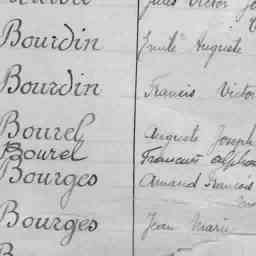 Jules Victor
Bourdin Emile Auguste
Bourdin Francis Victor
Bourel Auguste Joseph
Bourel
Bourges Amand François
Bourges Jean Marie